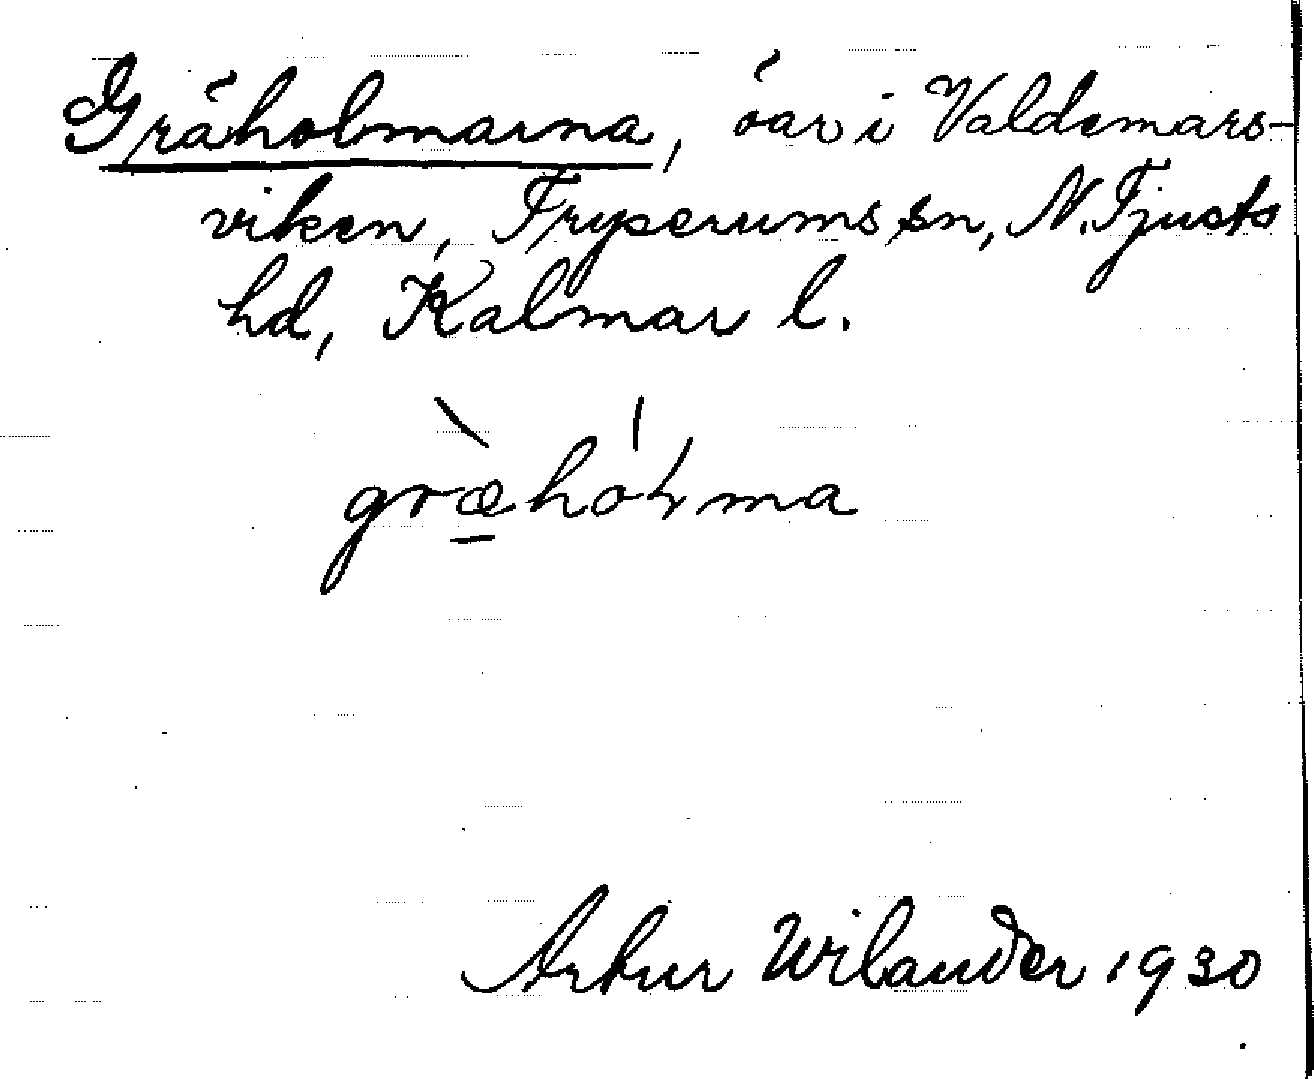 Gråholmarna, öar i Valdemars-
viken, Tryserums sn, N. Tjusts
hd, Kalmar l.
græ̱̀hólma
Artur Wilander 1930